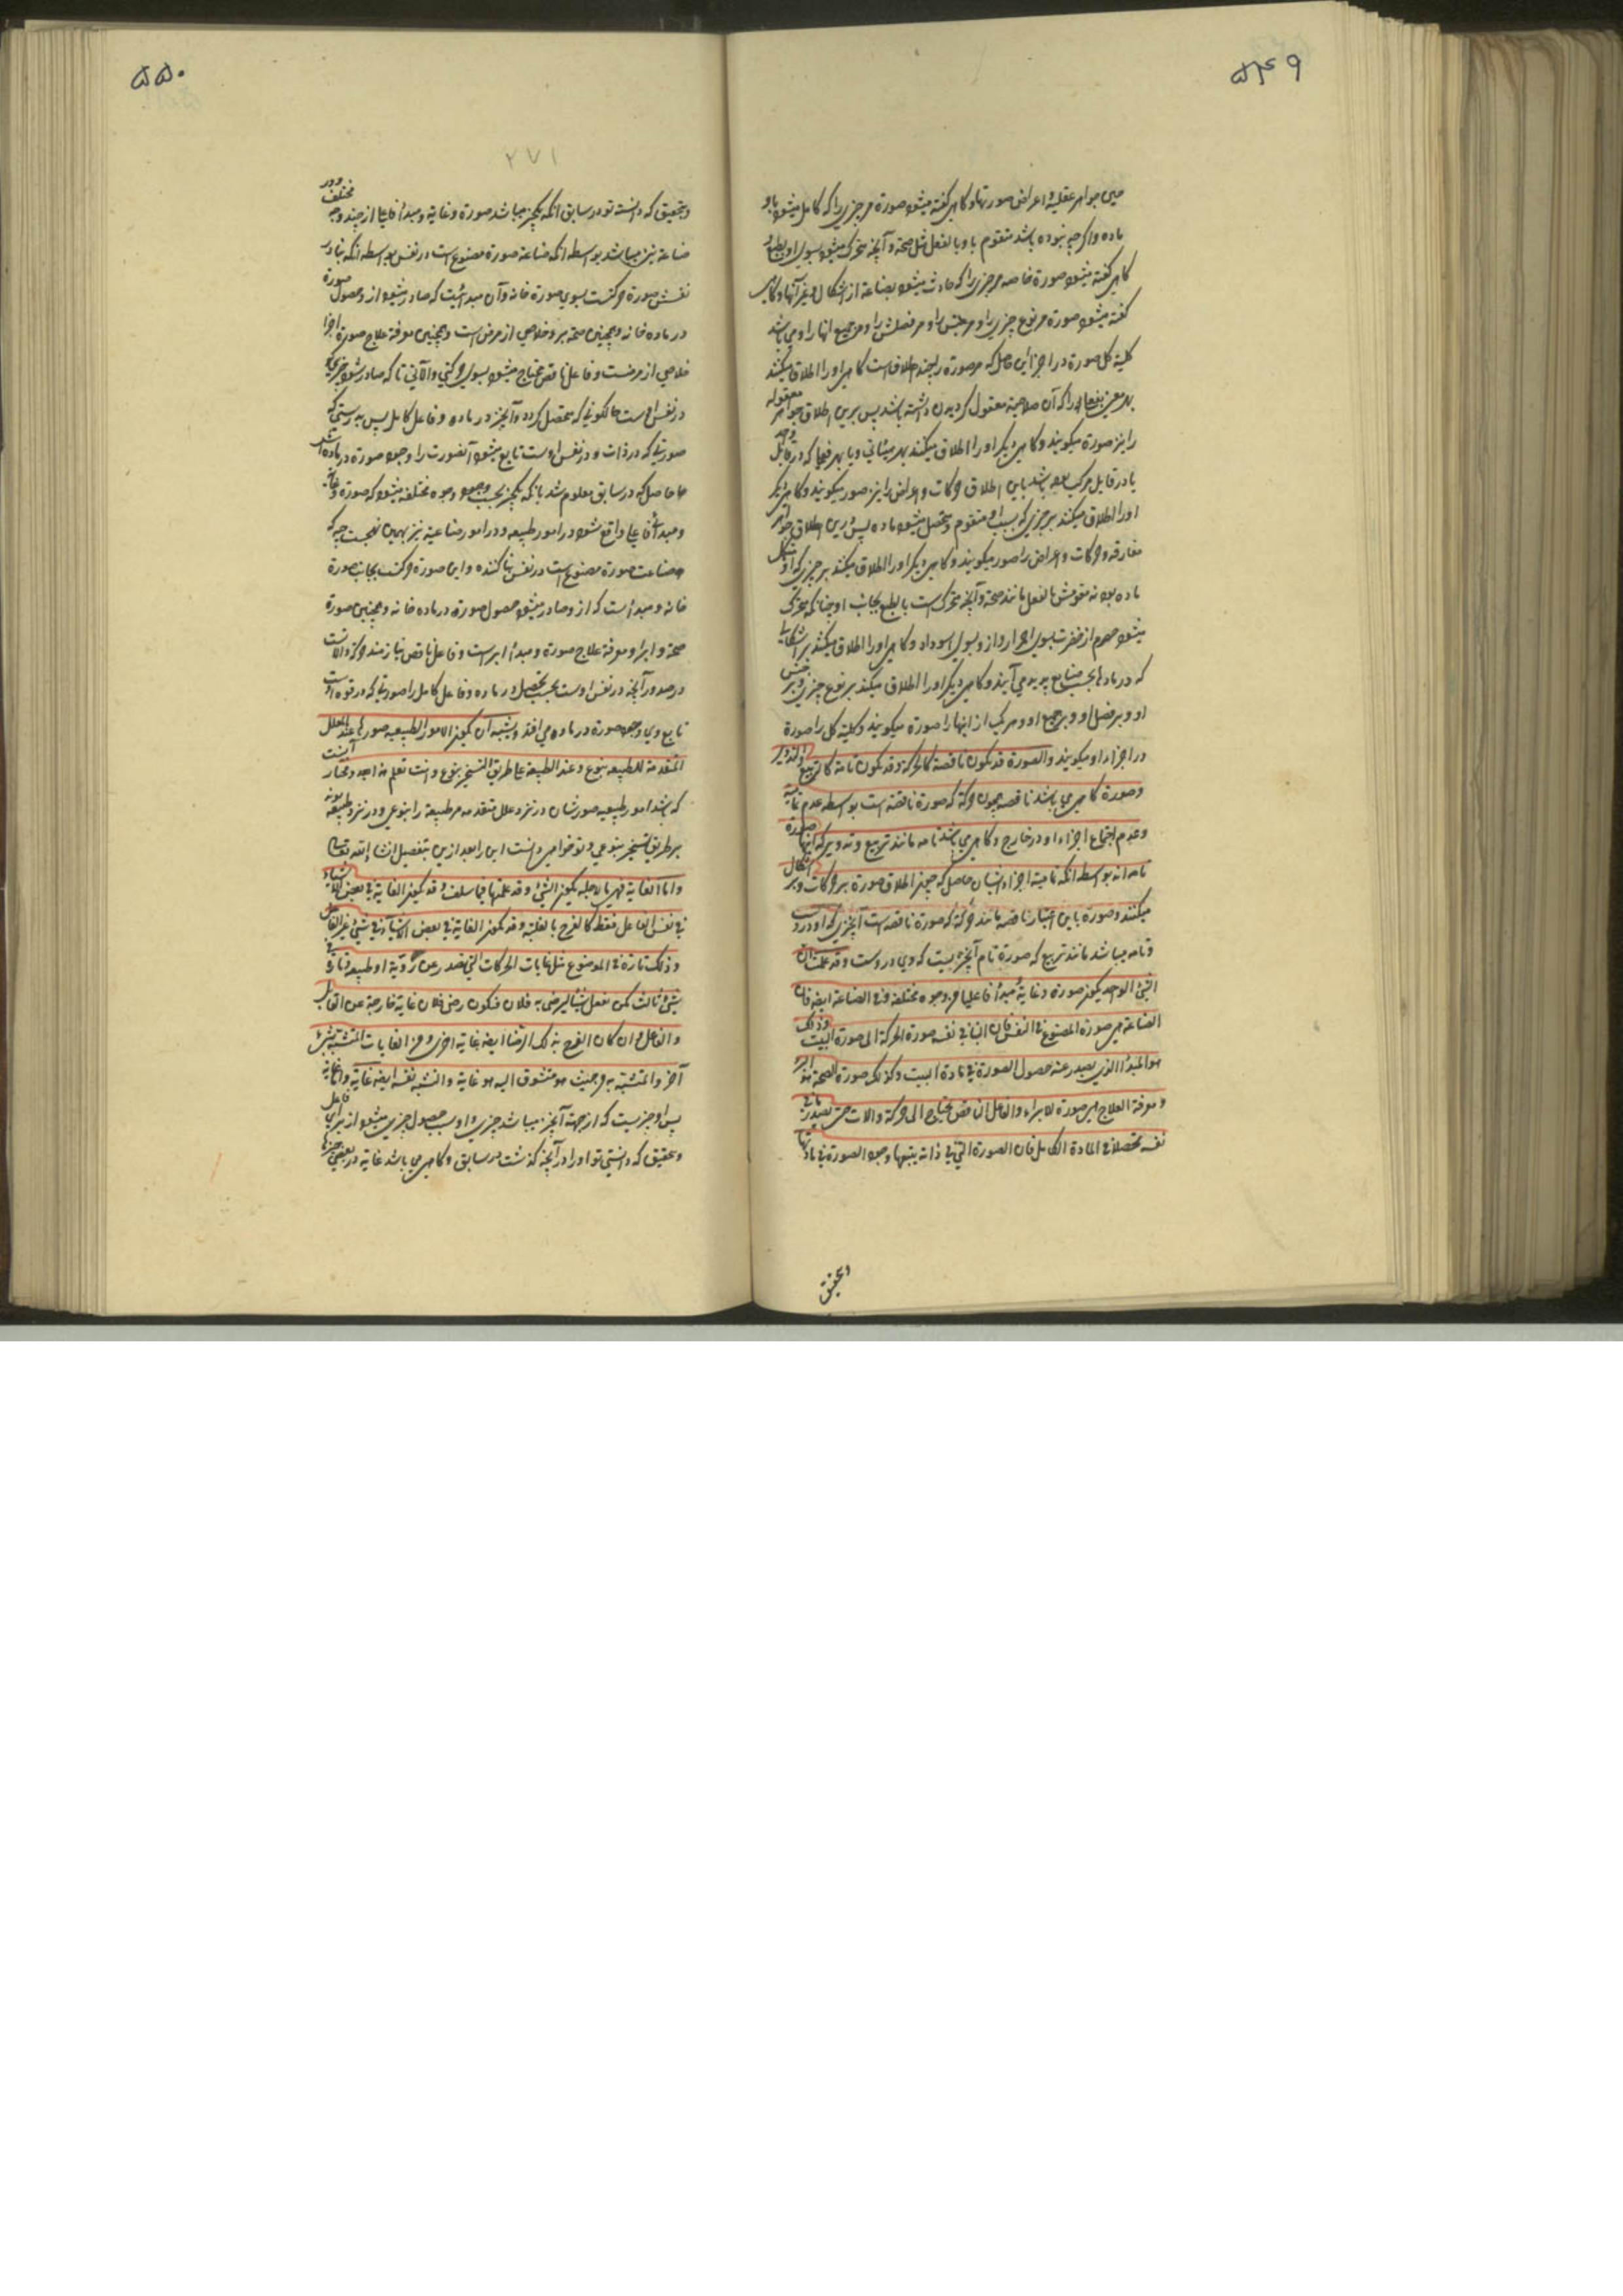 ۵۴۹
پس جواهر عقلیه و اعراض صورتها و گاهی گفته میشود صورة مر چیزیرا که کامل میشود باو
ماده و اگرچه نبوده باشد متقوم باو بالفعل مثل صحة و آنچه متحرک میشود بسوی او بطبع و
گاهی گفته میشود صورة خاصه مر چیزیرا که حادث میشود بصناعة از اشکال و غیر آنها و گاهی
گفته میشود صورة مر نوع چیزیرا و مر جنس را و مر فصلش را و مر جمیع اینها را و می باشد
کلیة کل صورة در اجزا این حاصل که مر صورة را چند اطلاق است گاهی او را اطلاق میکنند
بهر معنی بفعلی را که آن صلاحیة معقول گردیدن داشته باشد پس برین اطلاق جواهر معقوله
را نیز صورة میگویند و گاهی دیگر او را اطلاق میکنند بهر هیئاتی و یا بهر فعلی که در قابل وحد
یا در قابل مرکب بوده باشد باین اطلاق حرکات و اعراض را نیز صور میگویند و گاهی دیگر
او را اطلاق میکنند بر چیزی که بسبب او متقوم و متحصل میشود ماده پس درین اطلاق جواهر
مفارقه و حرکات و اعراض را صور میگویند و گاهی دیگر او را اطلاق میکنند بر چیزی که او مکمل
ماده بود نه مقومش بالفعل مانند صحة و آنچه متحرک است بالطبع بجانب او چنانکه متحرک
میشود حصرم از خضرت بسوی احمرار و از و بسوی اسوداد و گاهی او را اطلاق میکنند بر اشکالی
که در مادها بحسب صنایع پدید می آیند و گاهی دیگر او را اطلاق میکنند بر نوع چیزی و بر جنس
او و بر فصل او و بر جمیع او و مرکب از اینها را صورة میگویند و کلیة کل را صورة
در اجزاء او میگویند والصورة قد تکون ناقصة کالحرکة و قد تکون تامة کالتربیع والتدویر
و صورة گاهی می باشد ناقصه چون حرکة که صورة ناقصه است بواسطه عدم تمامیه
و عدم اجتماع اجزاء او در خارج و گاهی می باشد تامه مانند تربیع و تدویر که اینها صورة
تامه اند بواسطه آنکه تمامیة اجزاء ایشان حاصل که چون اطلاق صورة بر حرکات و بر اشکال
میکنند و صورة باین اعتبار ناقصه مانند حرکة که صورة ناقصه است آنچیزی که او در وست
و تامه میباشد مانند تربیع که صورة تام آنچیزیست که وی دروست و قد علمت ان
الشیء الواحد یکون صورة و غایة و مبدأ فاعلیا من وجوه مختلفه و فی الصناعة ایضا فان
الصناعة هی صورة المصنوع فی النفس فان البناء فی نفسه صورة الحرکة الی صورة البیت و ذلک
هو المبدأ الذی یصدر عنه حصول الصورة فی مادة البیت و کذلک صورة الصحة هو البرء
و معرفة العلاج هی صورة للابراء والفاعل الناقص یحتاج الی حرکة والات حتی یصدر ما فی
نفسه محصلا فی المادة الکامل فان الصورة التی فی ذاته یتبعها وجود الصورة فی مادتها
و تحقیق
۵۵۰
۲۷۱
و تحقیق که دانسته تو در سابق انکه یکچیز میباشد صورة و غایة و مبدأ فاعلیا از چند وجه مختلف و در
صناعة نیز میباشد بواسطه انکه صناعة صورة مصنوع است در نفس بواسطه انکه بنا در
نفسش صورة حرکتست بسوی صورة خانه و آن مبدائیست که صادر میشود از و حصول صورة
در ماده خانه و همچنین صحة برء و خلاصی از مرض است و همچنین معرفة علاج صورة ابرا
خلاصی از مرضست و فاعل ناقص محتاج میشود بسوی حرکتی و الآتی تا که صادر شود چیزی که
در نفس اوست حالکونی که متحصل کردد و آنچیز در ماده و فاعل کامل پس بدرستی که
صورتی که در ذات و در نفس اوست تابع میشود آنصورت را وجود صورة در ماده اش
ما حاصل که در سابق معلوم شد بانکه یکچیز بحسب وجوه مختلفه میشود که صورة و غایة
و مبدأ فاعلی واقع شود در امور طبیعه و در امور صناعیه نیز بهمین نهجست چه که
صناعت صورة مصنوع است در نفس بنا کننده و این صورة حرکتست بجانب صورة
خانه و مبداست که از و صادر میشود حصول صورة در ماده خانه و همچنین صورة
صحة و ابراء و معرفة علاج صورة و مبدأ ابراست و فاعل ناقص نیازمند حرکة و الاتست
در صدور آنچه در نفس اوست بحسب تحصیل در ماده و فاعل کامل را صورتی که در قوة اوست
تابع وی وجود صورة در ماده می افتد و یشبه ان یکون الامور الطبیعیه صورها عند العلل
المتقدمة للطبیعه بنوع و عند الطبیعة علی طریق التسخیر بنوع وانت تعلم هذا بعد و مختار آنست
که باشد امور طبیعیه صورشان در نزد علل متقدمه مر طبیعة را بنوعی و در نزد طبیعه بوده
بر طریق تسخیر بنوعی و تو خواهی دانست این را بعد ازین بتفصیل انشا الله تعالی
و اما الغایة فهی ما لاجله یکون الشیء و قد علمتها فیما سلف و قد یکون الغایة فی بعض الاشیاء
فی نفس الفاعل فقط کالفرح بالغلبة و قد یکون الغایة فی بعض الاشیاء فی شیء غیر الفاعل
و ذلک تارة فی الموضوع مثل غایات الحرکات التی تصدر عن رویة او طبیعه و تارة فی
شیء ثالث کمن یفعل شیئا لیرضی به فلان فیکون رضی فلان غایة خارجة عن القابل
والفاعل و ان کان الفرح بذلک الرضا ایضا غایة اخری و من الغایات التشبه بشیء
آخر والمتشبه به من حیث هو متشوق الیه هو غایة والتشبه نفسه ایضا غایة و اما غایة
پس او چیزیست که از جهة آنچیز میباشد چیزی و او سبب حصول چیزی میشود از برای فاعل
و تحقیق که دانستی تو او را در آنچه گذشت در سابق و گاهی می باشد غایة در بعضی چیزها